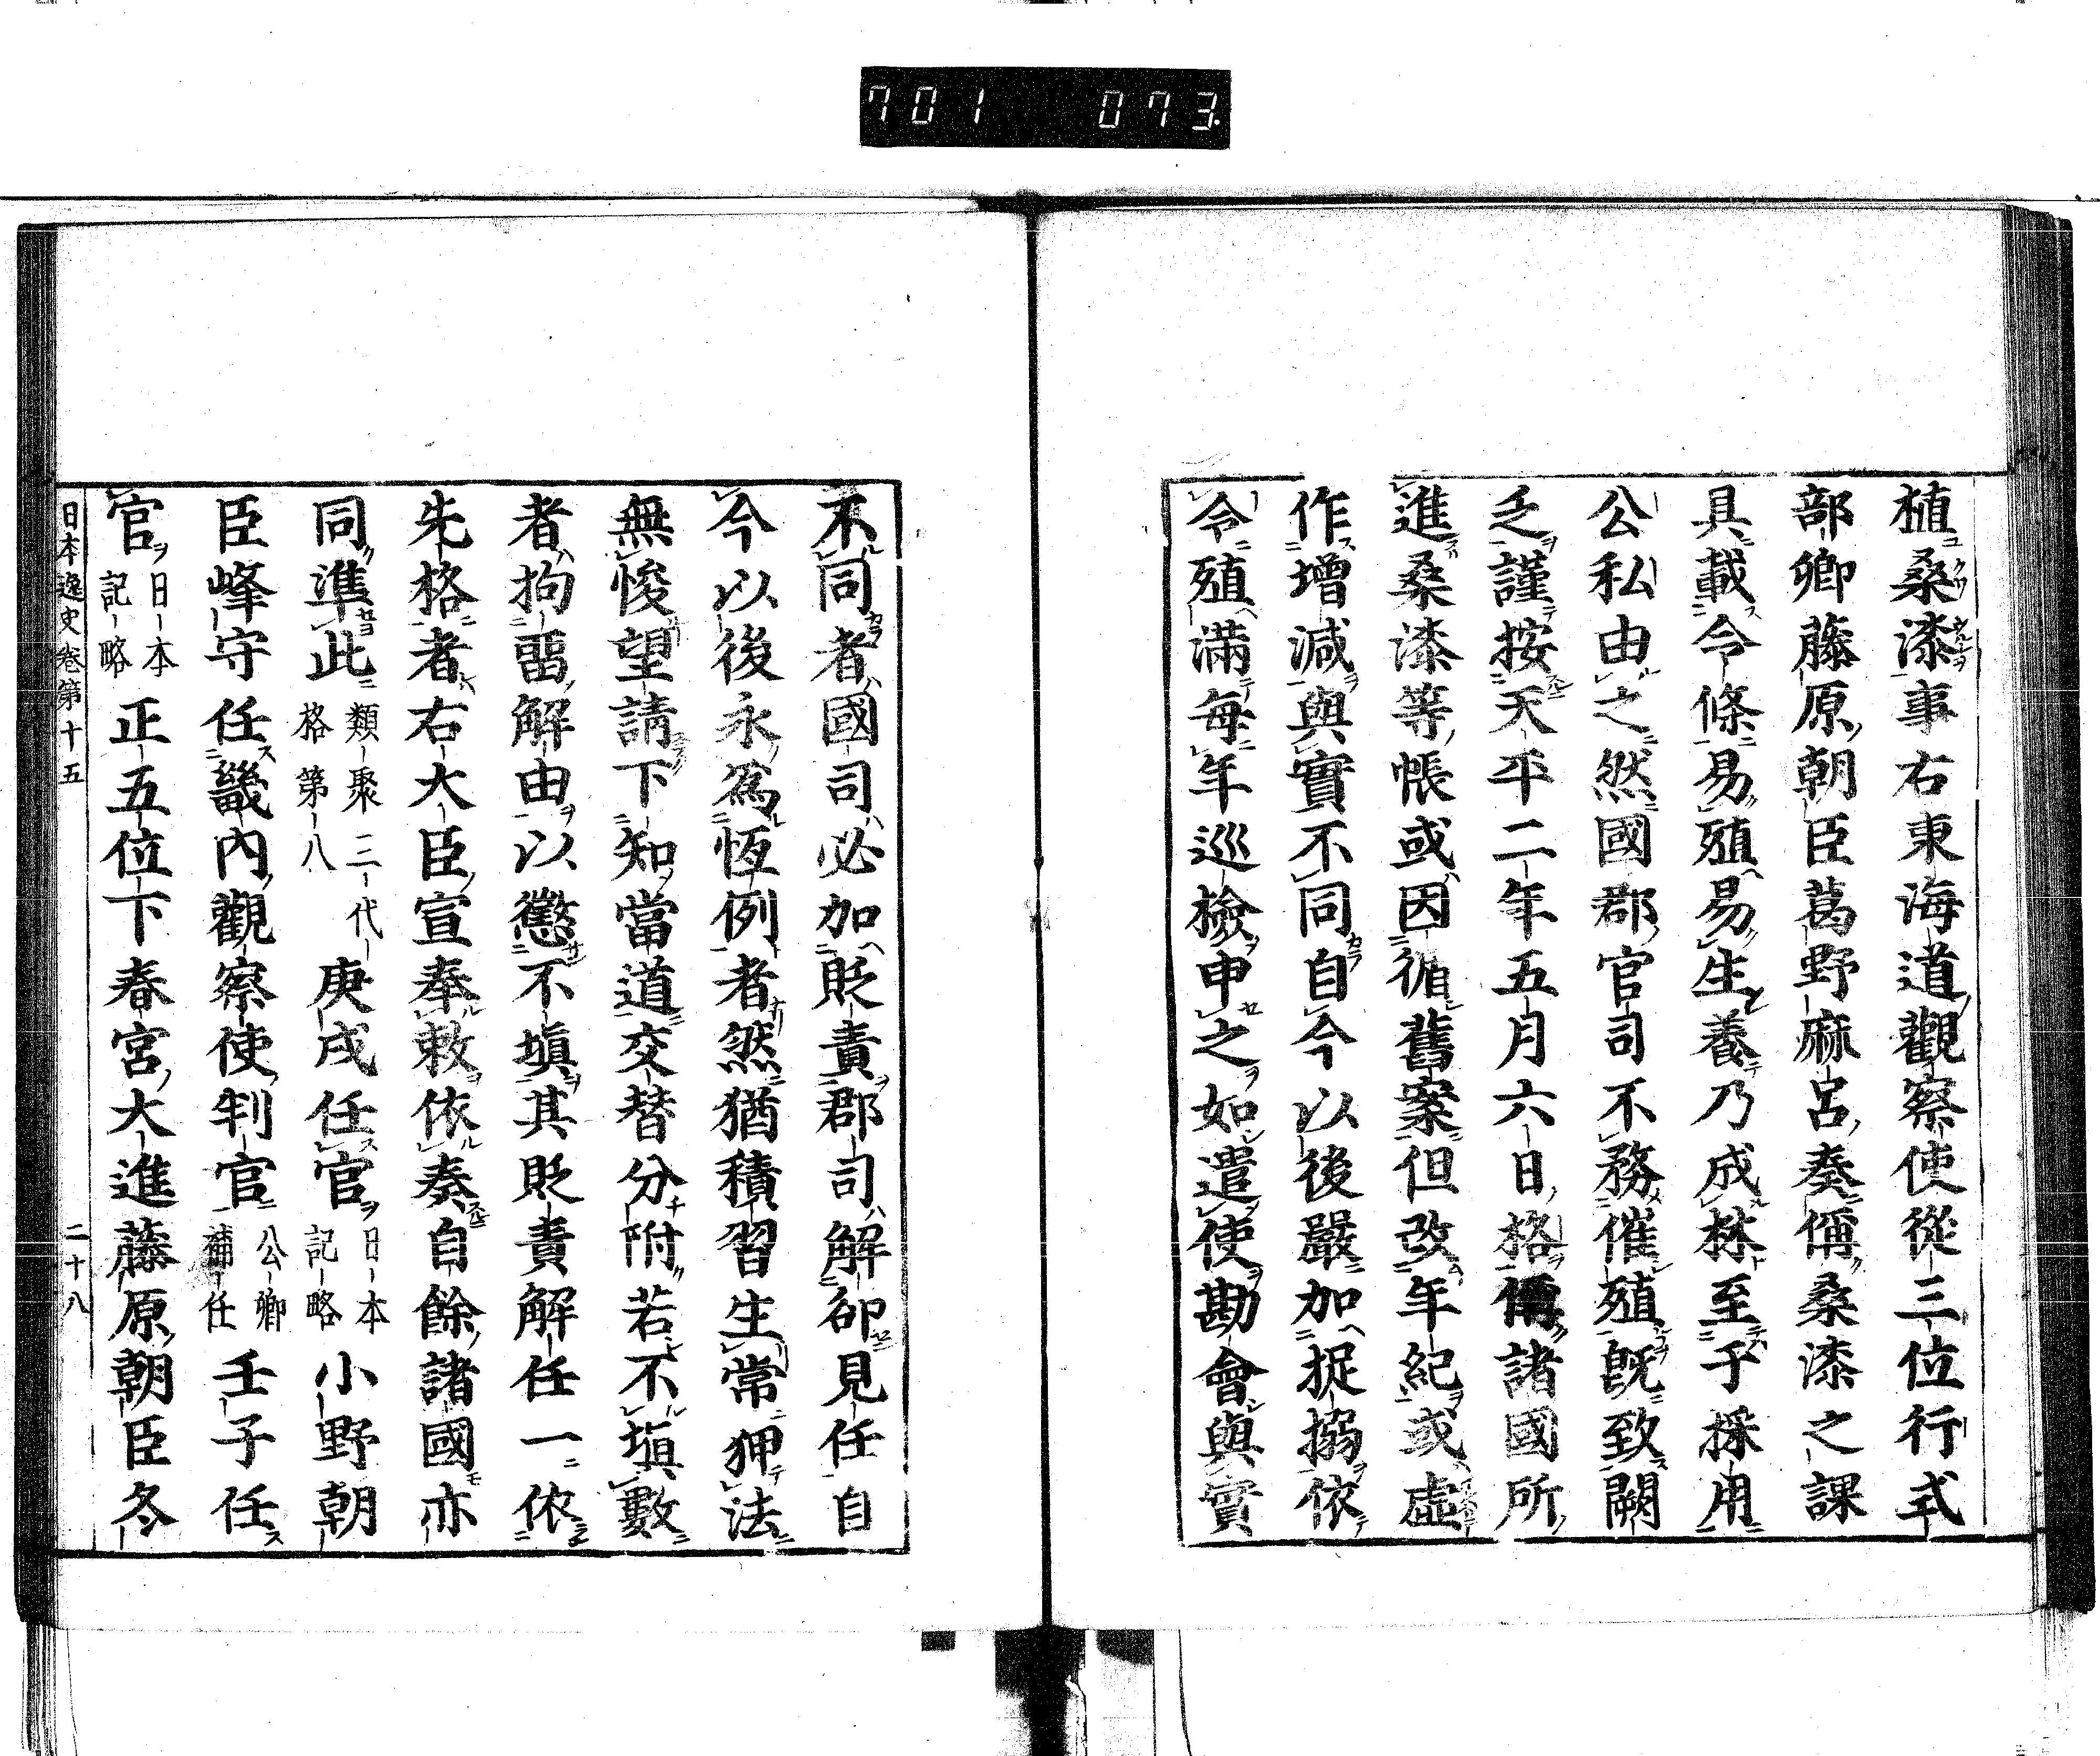 701 073
植桑漆事右東海道觀察使從三位行式
部卿藤原朝臣葛野麻呂奏偁桑漆之課
具載令條易殖易生養乃成林至于採用
公私由之然國郡官司不務催殖既致闕
乏謹按天平二年五月六日格偁諸國所
進桑漆等帳或因循舊案但改年紀或虛
作增減與實不同自今以後嚴加捉搦依
令殖滿每年巡檢申之如遣使勘會與實
不同者國司必加貶責郡司解却見任自
今以後永為恆例者然猶積習生常狎法
無悛望請下知當道交替分附若不塡數
者拘畱解由以懲不塡其貶責解任一依
先格者右大臣宣奉敕依奏自餘諸國亦
同準此類聚三代格第八庚戌任官日本記略小野朝
臣峰守任畿內觀察使判官公卿補任壬子任
官日本記略正五位下春宮大進藤原朝臣冬
日本逸史卷第十五 二十八